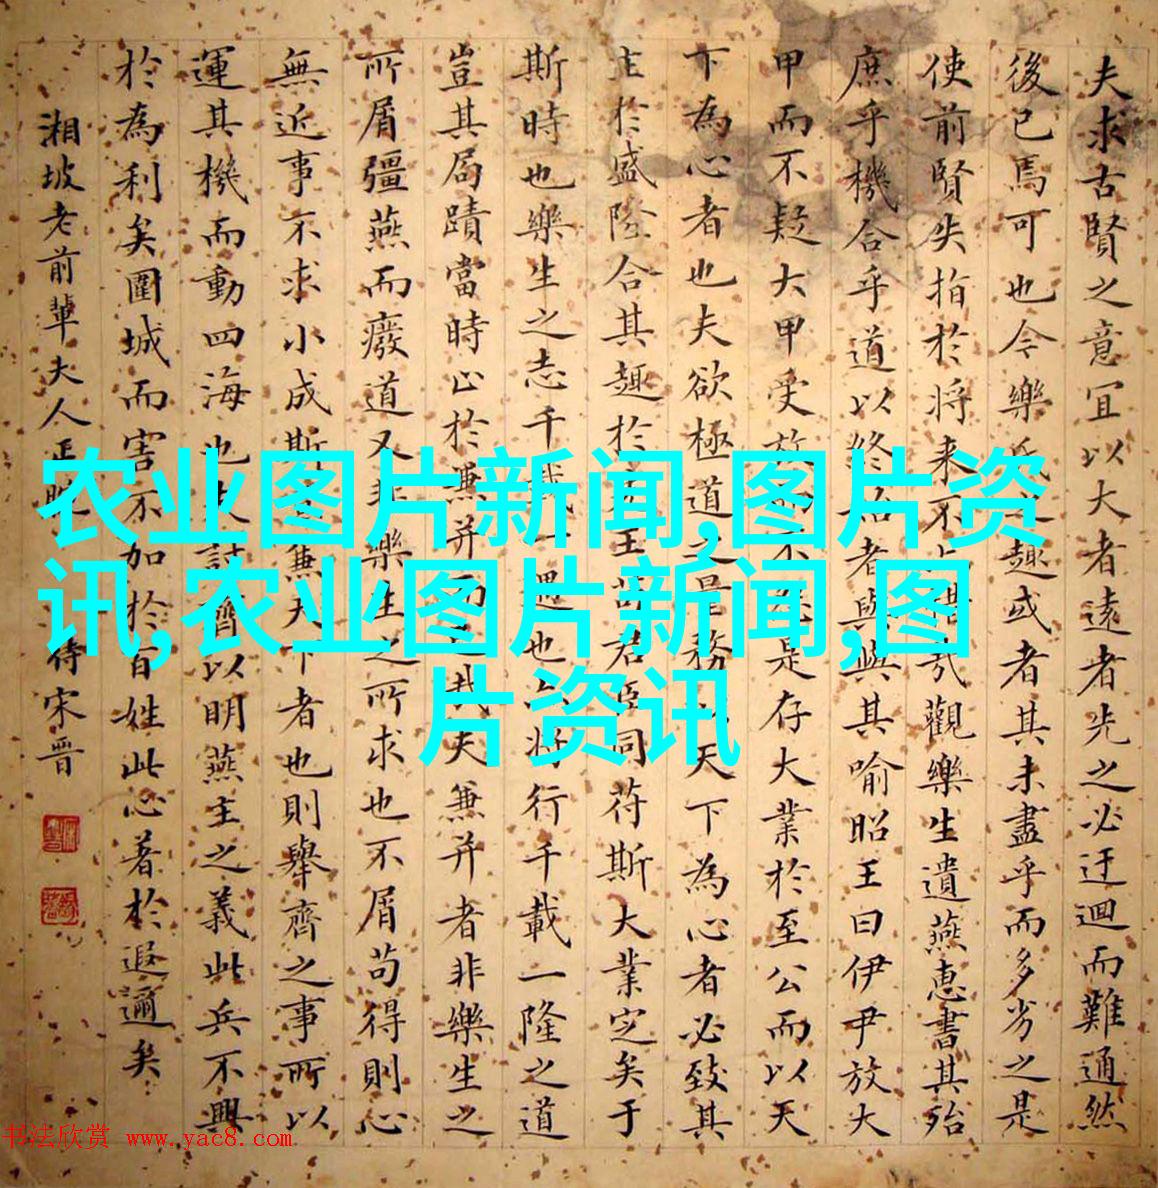 夫求古賢之意宜以大者遠者先之必迂迴而難通然
後已焉可也今樂氏之趣或者其未盡乎而多劣之是
使前賢失指於将来不
觀樂生遺燕惠書其殆
庶乎機合乎道以終始者與其喻昭王曰伊尹放大
甲而不疑大甲受放
是存大業於至公而以天
下為心者也夫欲極道之
務以天下為心者必致其
主於盛隆合其趣於
王苟君臣同苻斯大業定矣于
斯時也樂生之志千
也亦将行千載一隆之道
豈其局蹟當時止於兼并而已哉夫兼并者非樂生之
所屑彊燕而廢道又非樂生之所求也不屑苟得則心
無近事不求小成斯
兼天下者也則舉齊之事所以
運其機而動四海也夫討齊以明燕主之義此兵不興
於為利矣圍城而害不加於百姓此心著於遐邇矣
湘坡老前輩夫人正
侍宋晋
农业图片新闻,图片资
讯,农业图片新闻,图
片资讯
书法欣赏 www.yac8.com